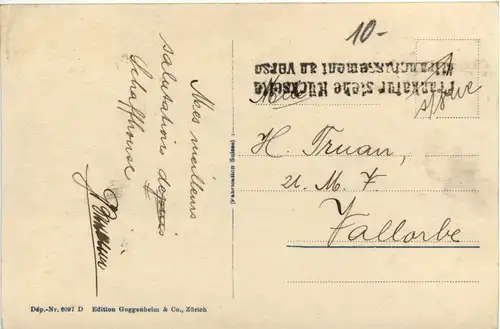 10.-
Frankatur siehe Rückseite
Affranchissement au verso
Mes meilleurs
salutations depuis
Schaffhouse
H. Truan,
U. M. 7
Vallorbe
(Fabrication Suisse)
Dép.-Nr. 6097 D Edition Guggenheim & Co., Zürich